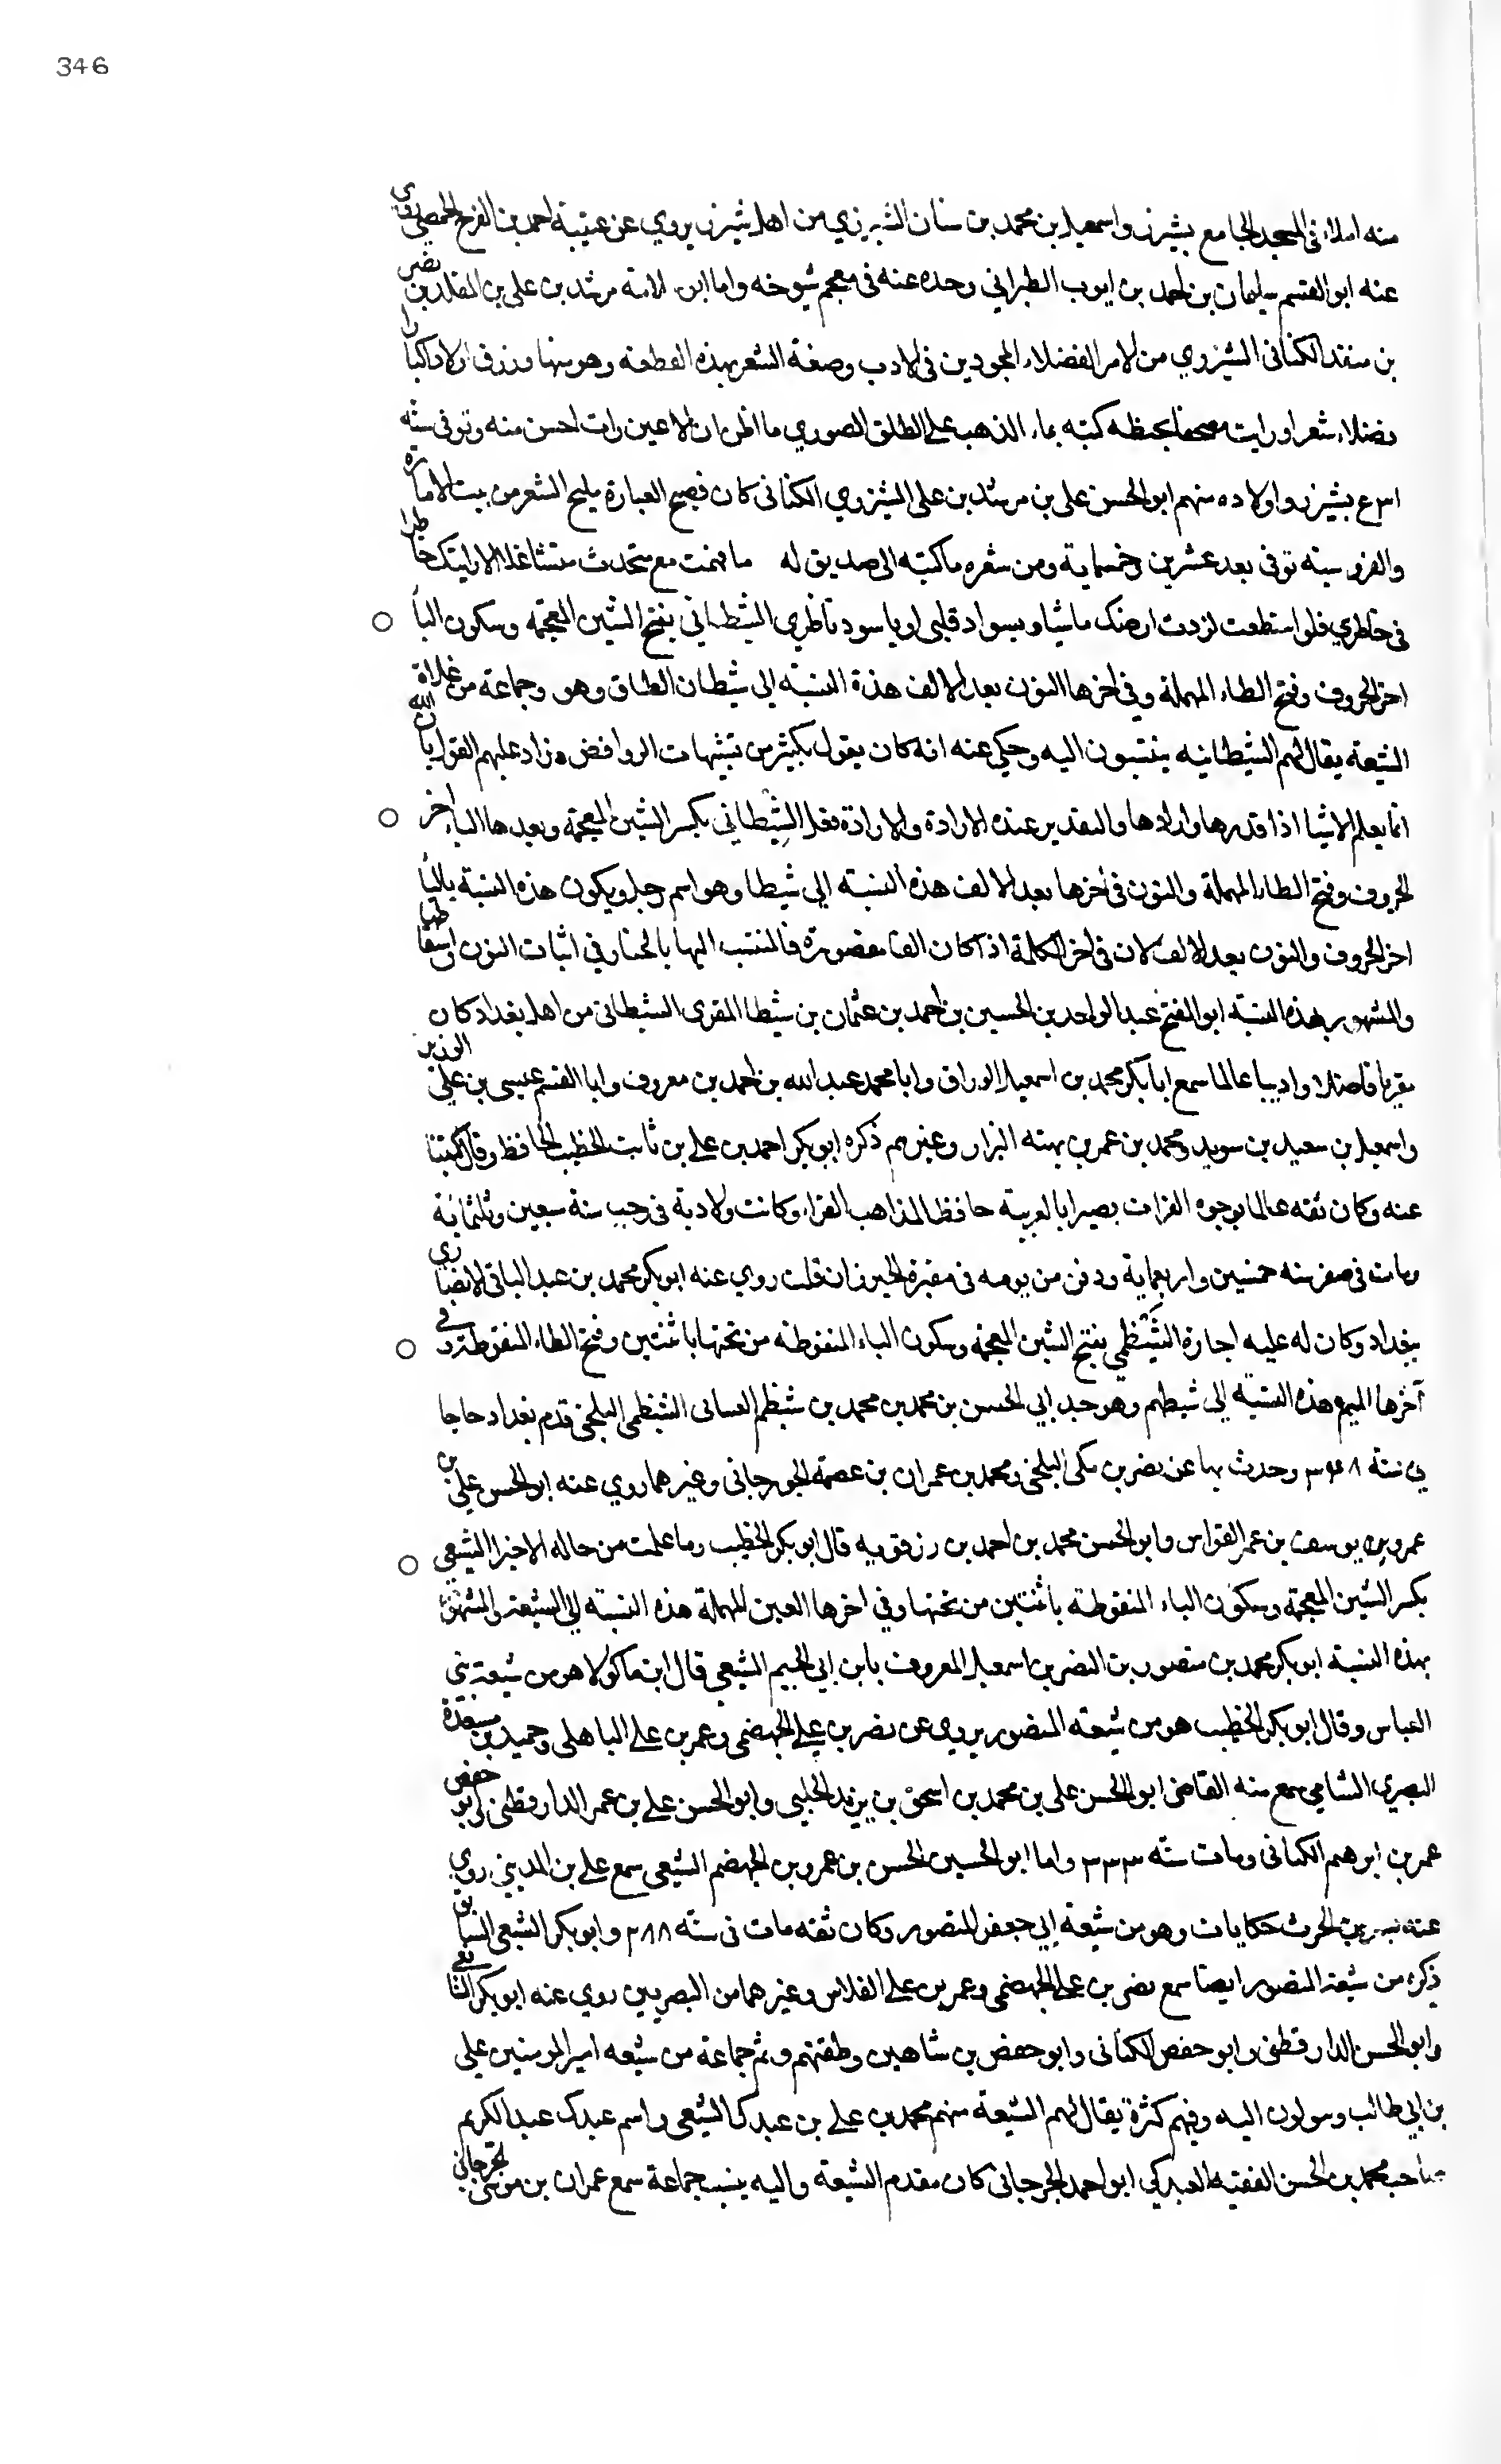 346
منه املاء فى المسجد الجامع بشيزر واسمعيل بن محمد بن سنان الشيزري من اهل شيزر يروي عن عتبة احمد بن الفرج الحمصى روي
عنه ابو القسم سليمان بن احمد بن ايوب الطبراني وحده عنه فى معجم شيوخه واما ابن الامة مرشد بن على بن المقلد بن نصر
بن منقذ الكنانى الشيزري من الامر الفضلاء المجودين فى الادب وصنعة الشعر بهذه القطعة وهو منها ورزق اولادا كبارا
فضلاء شعرا ورايت مصحفا بخطه كتبه بماء الذهب على الطلق الصوري ما اظن ان الاعين رات احسن منه وتوفى سنه
بشيزر واولاده منهم ابو الحسن على بن مرشد بن على الشيزري الكنانى كان فصيح العبارة مليح الشعر من بيت الامارة
والفروسية توفى بعد عشرين وخمسماية ومن شعره ما كتبه الى صديق له ما فهمت مع متحدث متشاغلا الا رايتك خاطرا
فى خاطري فلو استطعت لزرت ارضك ماشيا وبسواد قلبى او باسود ناظري الشيطاني بفتح الشين المعجمة وسكون اليا
اخر الحروف وفتح الطاء المهملة وفي اخرها النون بعد الالف هذة النسبة الى شيطان الطاق وهو وجماعة من غلاة
الشيعة يقال لهم الشيطانيه ينتسبون اليه وحكي عنه انه كان يقول بكثير من تشبيهات الروافض وزاد عليهم القول بان الله
انما يعلم الاشيا اذا قدرها وارادها والتقدير عنده الارادة والارادة فعل الشِيْطاني بكسر الشين المعجمة وبعدها الياء اخر
الحروف وفتح الطاء المهملة والنون فى اخرها بعد الالف هذه النسبة الي شيطا وهو اسم رجل ويكون هذه النسبة باليا
اخر الحروف والنون بعد الالف لان فى اخر الكلمة اذا كان الفا مقصورة فالمنتسب اليها بالخيار في اثبات النون واسقاطها
والمشهور بهذه النسبة ابو الفتح عبد الواحد بن الحسين بن احمد بن عثمان بن شيطا المقرى الشيطانى من اهل بغداد كان
مقريا فاضلا واديبا عالما سمع ابا بكر محمد بن اسمعيل الوراق وابا محمد عبد الله بن احمد بن معروف وابا القسم عيسى بن على الوزير
واسمعيل بن سعيد بن سويد ومحمد بن عمر بن بهته البزار وغيرهم ذكره ابو بكر احمد بن على بن ثابت الخطيب الحافظ وقال كتبنا
عنه وكان ثقه عالما بوجوه القرات بصيرا بالعربية حافظا لمذاهب القراء وكانت ولادته فى رجب سنة سبعين وثلثمائة
ومات فى صفر سنه خمسين واربعماية ودفن من يومه فى مقبرة الخيرزان قلت روي عنه ابو بكر محمد بن عبد الباقى الانصاري
ببغداد وكان له عليه اجازة الشَيْظَمي بفتح الشين المعجمة وسكون الياء المنقوطه من تحتها باثنتين وفتح الطاء المنقوطة وفي
آخرها الميم هذه النسبة الى شيظم وهو جد ابي الحسن بن محمد بن محمد بن شيظم الغسانى الشيظمى البلخى قدم بغداد حاجا
في سنة ٣٤٨ وحدث بها عن نصر بن مكى البلخى ومحمد بن عمران بن عصمة الجوزجانى وغيرهما روي عنه ابو الحسن على بن
عمرو بن يوسف بن عمر القواس وابو الحسن محمد بن احمد بن رزقويه قال ابو بكر الخطيب وما علمت من حاله الا خيرا الشيعي
بكسر الشين المعجمة وسكون الياء المنقوطة باثنتين من تحتها وفي اخرها العين المهملة هذه النسبة الى الشيعة والمشهور
بهذه النسبة ابو بكر محمد بن منصور بن النضر بن اسمعيل المعروف بابن ابي الجهم الشيعي قال ابن ماكولا هو من شيعة بنى
العباس وقال ابو بكر الخطيب هو من شيعة المنصور يروي عن نصر بن على الجهضمى وعمر بن على الباهلى وحميد بن مسعدة
البصري الشامي سمع منه القاضى ابو الحسن على بن محمد بن اسحق بن يزيد الحلبى وابو الحسن على بن عمر الدارقطنى وابو حفص
عمر بن ابرهيم الكنانى ومات سنة ٣٣٣ واما ابو الحسين الحسن بن عمرو بن الجهضم الشيعى سمع على بن المديني روي
عنه بن الحرث حكايات وهو من شيعة ابي جعفر المنصور وكان ثقه مات فى سنة ٢٨٨ وابو بكر الشيعى السابق
ذكره من شيعة المنصور ايضا سمع نصر بن على الجهضمي وعمر بن على الفلاس وغيرهما من البصريين روي عنه ابو بكر الشافعى
وابو الحسن الدارقطنى وابو حفص الكتانى وابو حفص بن شاهين وطبقتهم وثم جماعة من شيعه امير المومنين على
بن ابي طالب ومتولون اليه وفيهم كثرة يقال لهم الشيعة منهم محمد بن على بن عبدك الشيعى واسم عبدك عبد الكريم
صاحب محمد بن الحسن الفقيه العبدكي ابو احمد الجرجانى كان مقدم الشيعة واليه ينسب جماعة سمع عمران بن موسى الجرجانى